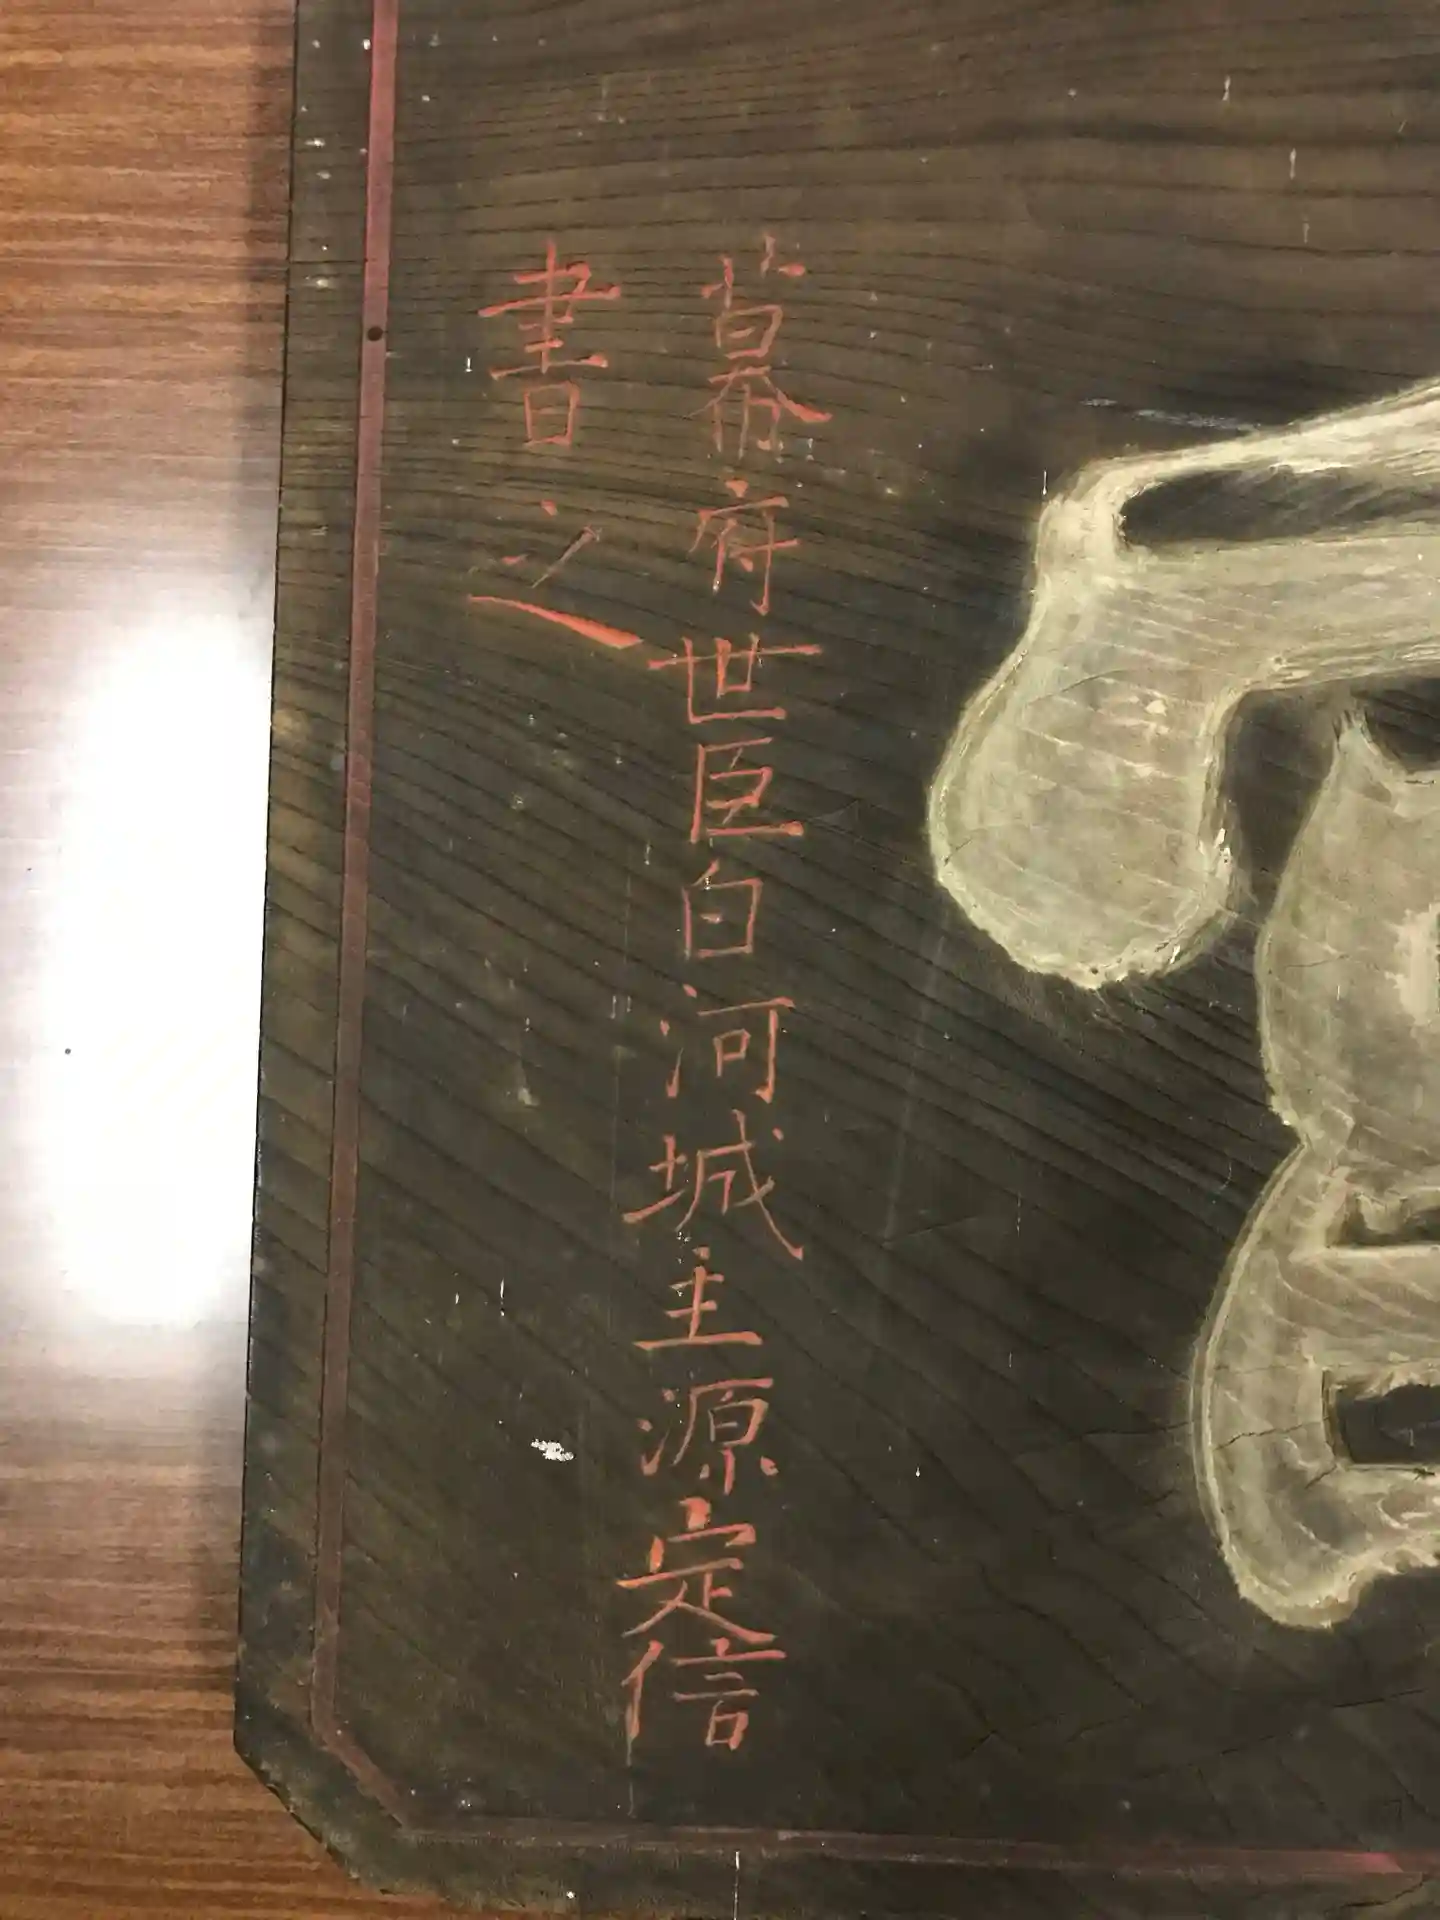 幕府世臣白河城主源定信
書之